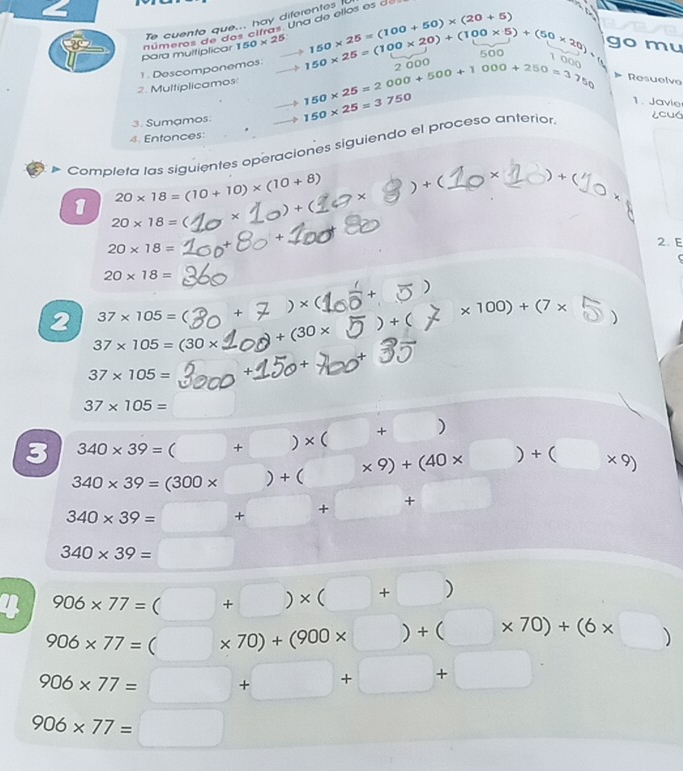 2
Te cuento que... hay diferentes
números de dos cifras. Una de ellas es
para multiplicar 150 × 25.
1. Descomponemos: → 150 × 25 = (100 + 50) × (20 + 5)
2. Multiplicamos: → 150 × 25 = (100 × 20) + (100 × 5) + (50 × 20) + (
2 000 500 1 000
3. Sumamos: → 150 × 25 = 2 000 + 500 + 1 000 + 250 = 3 750
4. Entonces: → 150 × 25 = 3 750
go mu
Resuelve
1. Javie
¿cuá
2. E
Completa las siguientes operaciones siguiendo el proceso anterior.
1
20 × 18 = (10 + 10) × (10 + 8)
20 × 18 = (10 × 10) + (10 × 8) + (10 × 10) + (10 × 8
20 × 18 = 100 + 80 + 100 + 80
20 × 18 = 360
2
37 × 105 = (30 + 7) × (100 + 5)
37 × 105 = (30 × 100) + (30 × 5) + (7 × 100) + (7 × 5)
37 × 105 = 3000 + 150 + 700 + 35
37 × 105 =
3
340 × 39 = ( + ) × ( + )
340 × 39 = (300 × ) + ( × 9) + (40 × ) + ( × 9)
340 × 39 = + + +
340 × 39 =
4
906 × 77 = ( + ) × ( + )
906 × 77 = ( × 70) + (900 × ) + ( × 70) + (6 × )
906 × 77 = + + +
906 × 77 =